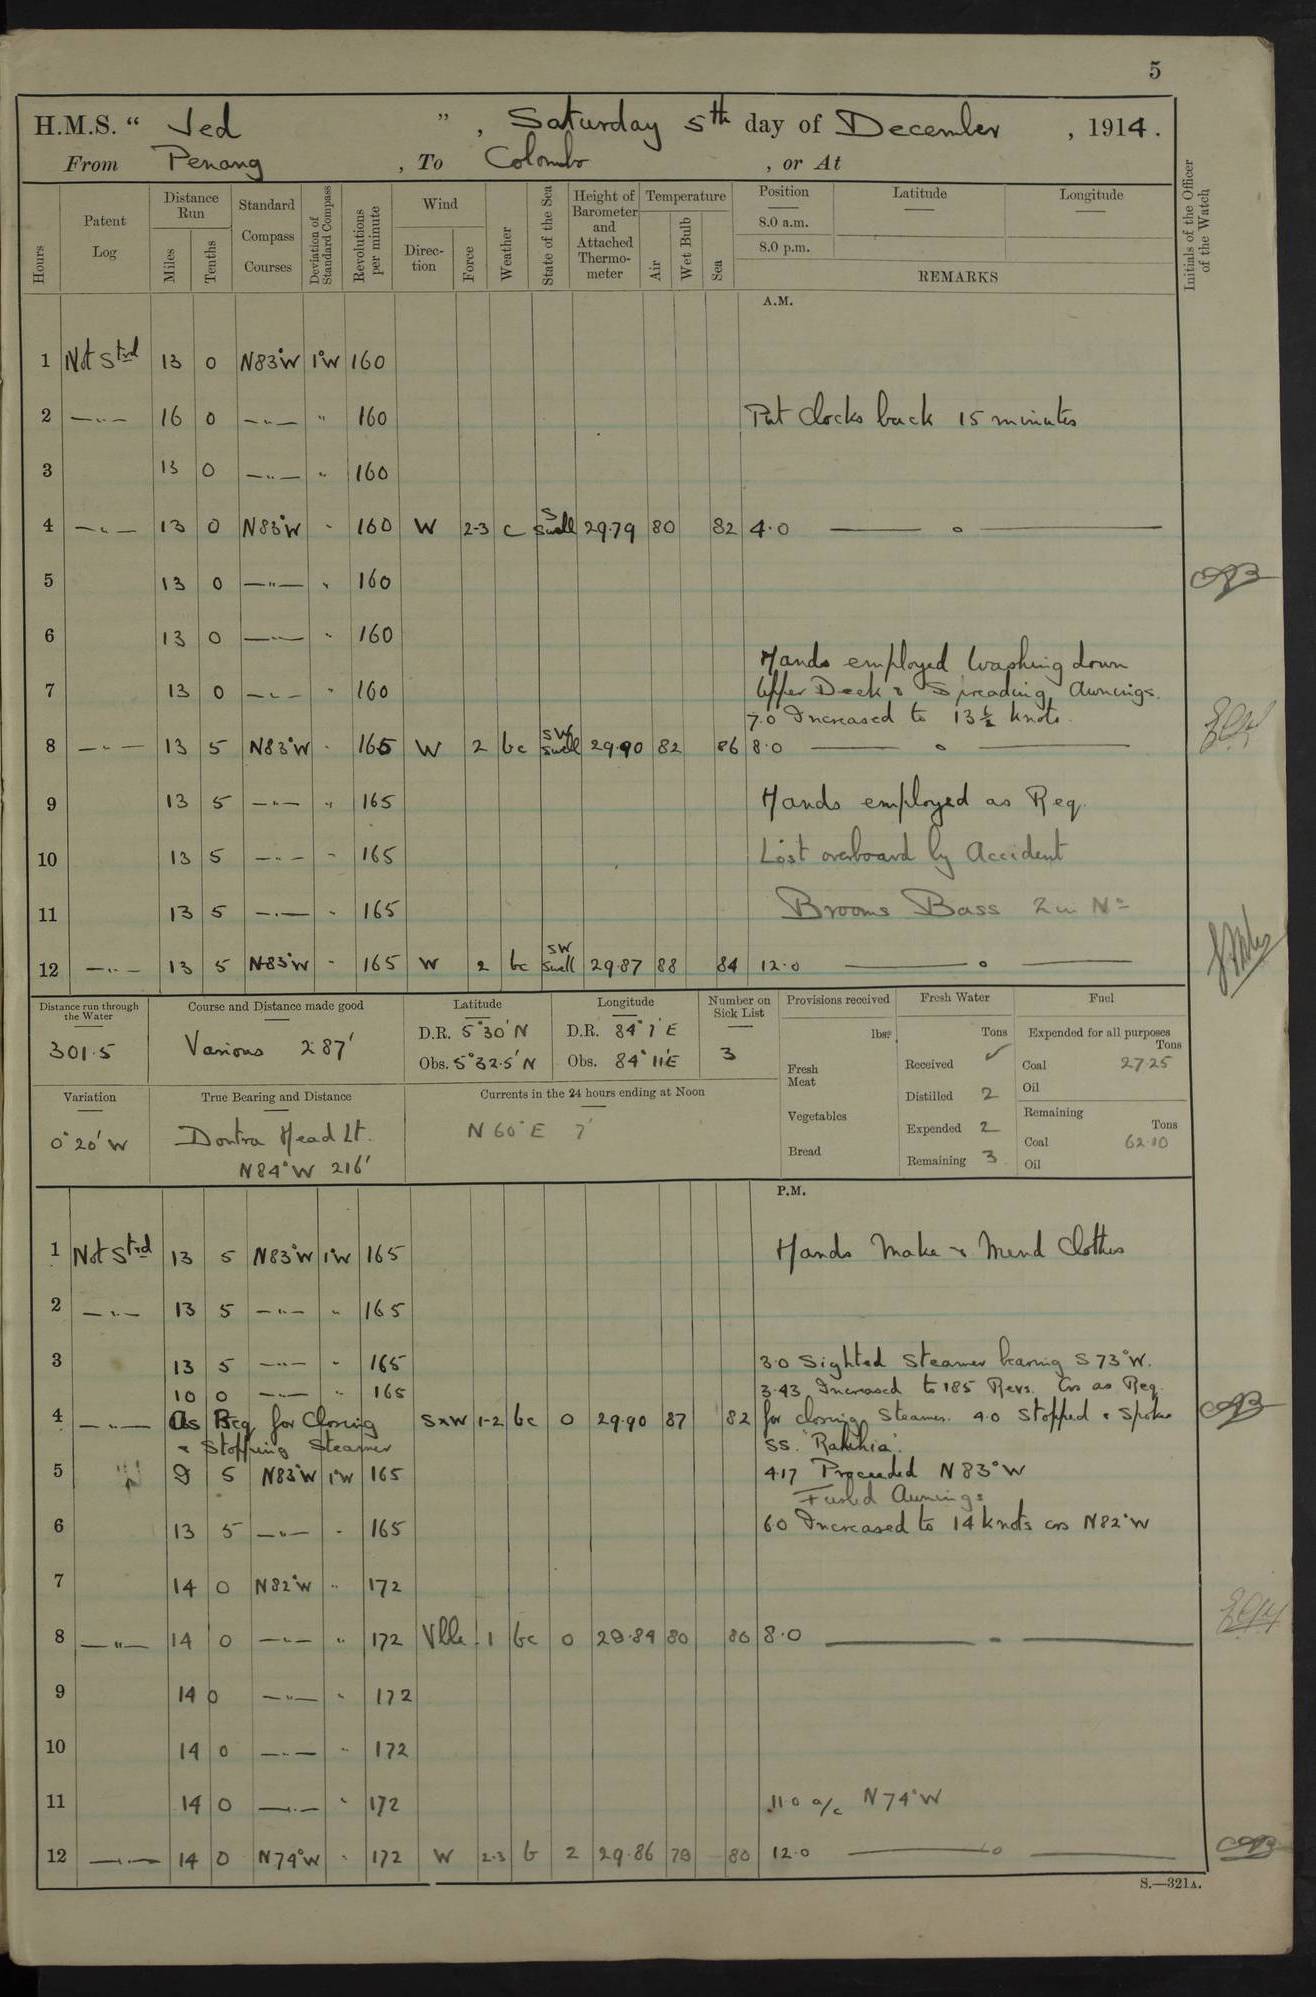 5
H.M.S. " Jed ", Saturday 5th day of December, 1914.
From Penang, To Colombo, or At
Hours
Patent Log
Distance Run
Miles
Tenths
Standard Compass Courses
Deviation of Standard Compass
Revolutions per minute
Wind
Direction
Force
Weather
State of the Sea
Height of Barometer and Attached Thermometer
Temperature
Air
Wet Bulb
Sea
Position
8.0 a.m.
8.0 p.m.
Latitude
Longitude
REMARKS
Initials of the Officer of the Watch
A.M.
1 Not Strd 13 0 N83°W 1°W 160
2 —„— 16 0 —„— „ 160 Put Clocks back 15 minutes
3 13 0 —„— „ 160
4 —„— 13 0 N83°W „ 160 W 2-3 c S Swell 29.79 80 82 4.0 ——— o ———
5 13 0 —„— „ 160
6 13 0 —„— „ 160
Hands employed Washing down
7 13 0 —„— „ 160 Upper Deck & Spreading Awnings.
7.0 Increased to 13½ knots.
8 —„— 13 5 N83°W „ 165 W 2 bc SW Swell 29.90 82 86 8.0 ——— o ———
9 13 5 —„— „ 165 Hands employed as Req.
10 13 5 —„— „ 165 Lost overboard by Accident
11 13 5 —„— „ 165 Brooms Bass 2 in No
12 —„— 13 5 N83°W „ 165 W 2 bc SW Swell 29.87 88 84 12.0 ——— o ———
Distance run through the Water
301.5
Course and Distance made good
Various 287'
Latitude
D.R. 5°30'N
Obs. 5°32.5'N
Longitude
D.R. 84°1'E
Obs. 84°11'E
Number on Sick List
3
Provisions received
lbs.
Fresh Meat
Vegetables
Bread
Fresh Water
Tons
Received ✓
Distilled 2
Expended 2
Remaining 3
Fuel
Expended for all purposes
Tons
Coal 27.25
Oil
Remaining
Tons
Coal 62.10
Oil
Variation
0°20'W
True Bearing and Distance
Dontra Head Lt.
N84°W 216'
Currents in the 24 hours ending at Noon
N60°E 7'
P.M.
1 Not Strd 13 5 N83°W 1°W 165 Hands Make & Mend Clothes
2 —„— 13 5 —„— „ 165
3 13 5 —„— „ 165 3.0 Sighted Steamer bearing S73°W.
10 0 —„— „ 165 3.43 Increased to 185 Revs. Crs as Req.
4 —„— As Req for Closing SxW 1-2 bc 0 29.90 87 82 for closing Steamer. 4.0 Stopped & Spoke
& Stopping Steamer SS.
5 9 5 N83°W 1°W 165 4.17 Proceeded N83°W
Furled Awnings
6 13 5 —„— „ 165 6.0 Increased to 14 knots crs N82°W
7 14 0 N82°W „ 172
8 —„— 14 0 —„— „ 172 Vble 1 bc 0 29.84 80 80 8.0 ——— „ ———
9 14 0 —„— „ 172
10 14 0 —„— „ 172
11 14 0 —„— „ 172 11.0 a/c N74°W
12 —„— 14 0 N74°W „ 172 W 2-3 b 2 29.86 79 80 12.0 ——— o ———
S.—321A.